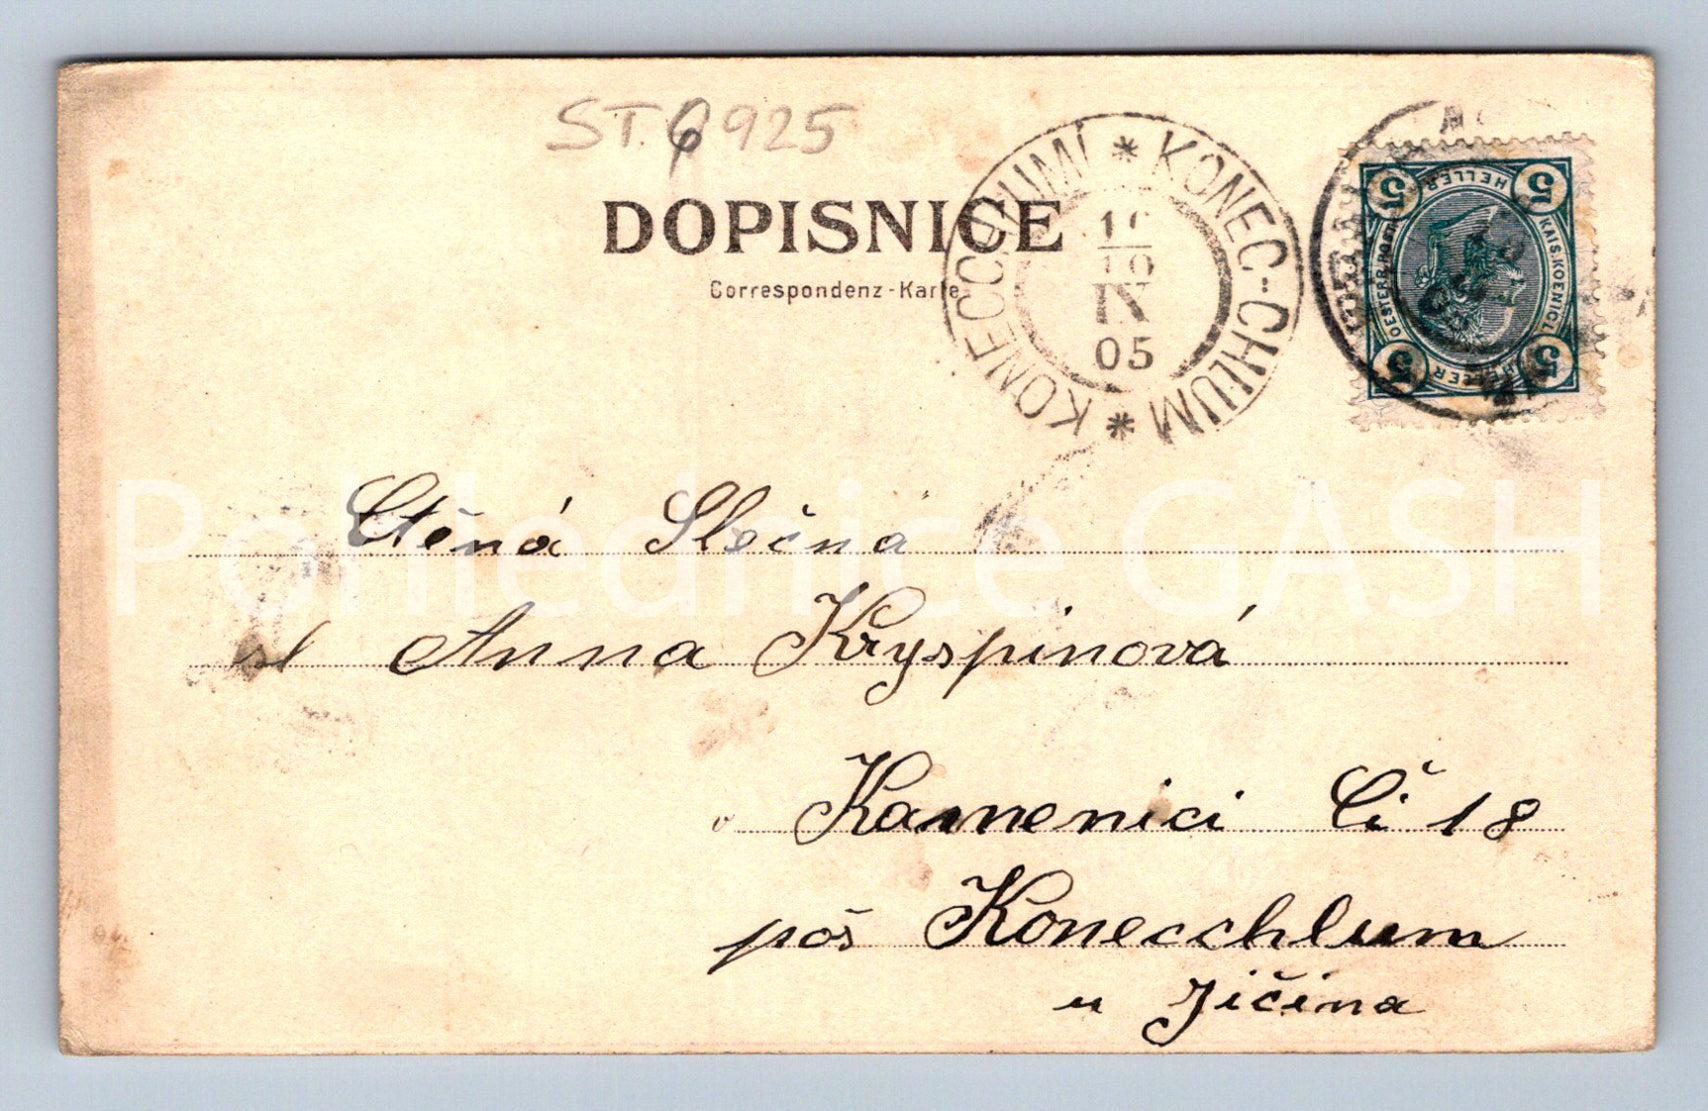 ST. 6925
DOPISNICE
Correspondenz-Karte
KONECCHLUMÍ * KONEC-CHLUM *
10
IV
05
5 5 5 5
HELLER HELLER
KAIS. KOENIGL.
OESTERR. POST
Ctěná Slečna
sl Anna Kryspinová
v Kamenici Či 18
poš Konecchlum
u Jičina
Pohlednice GASH